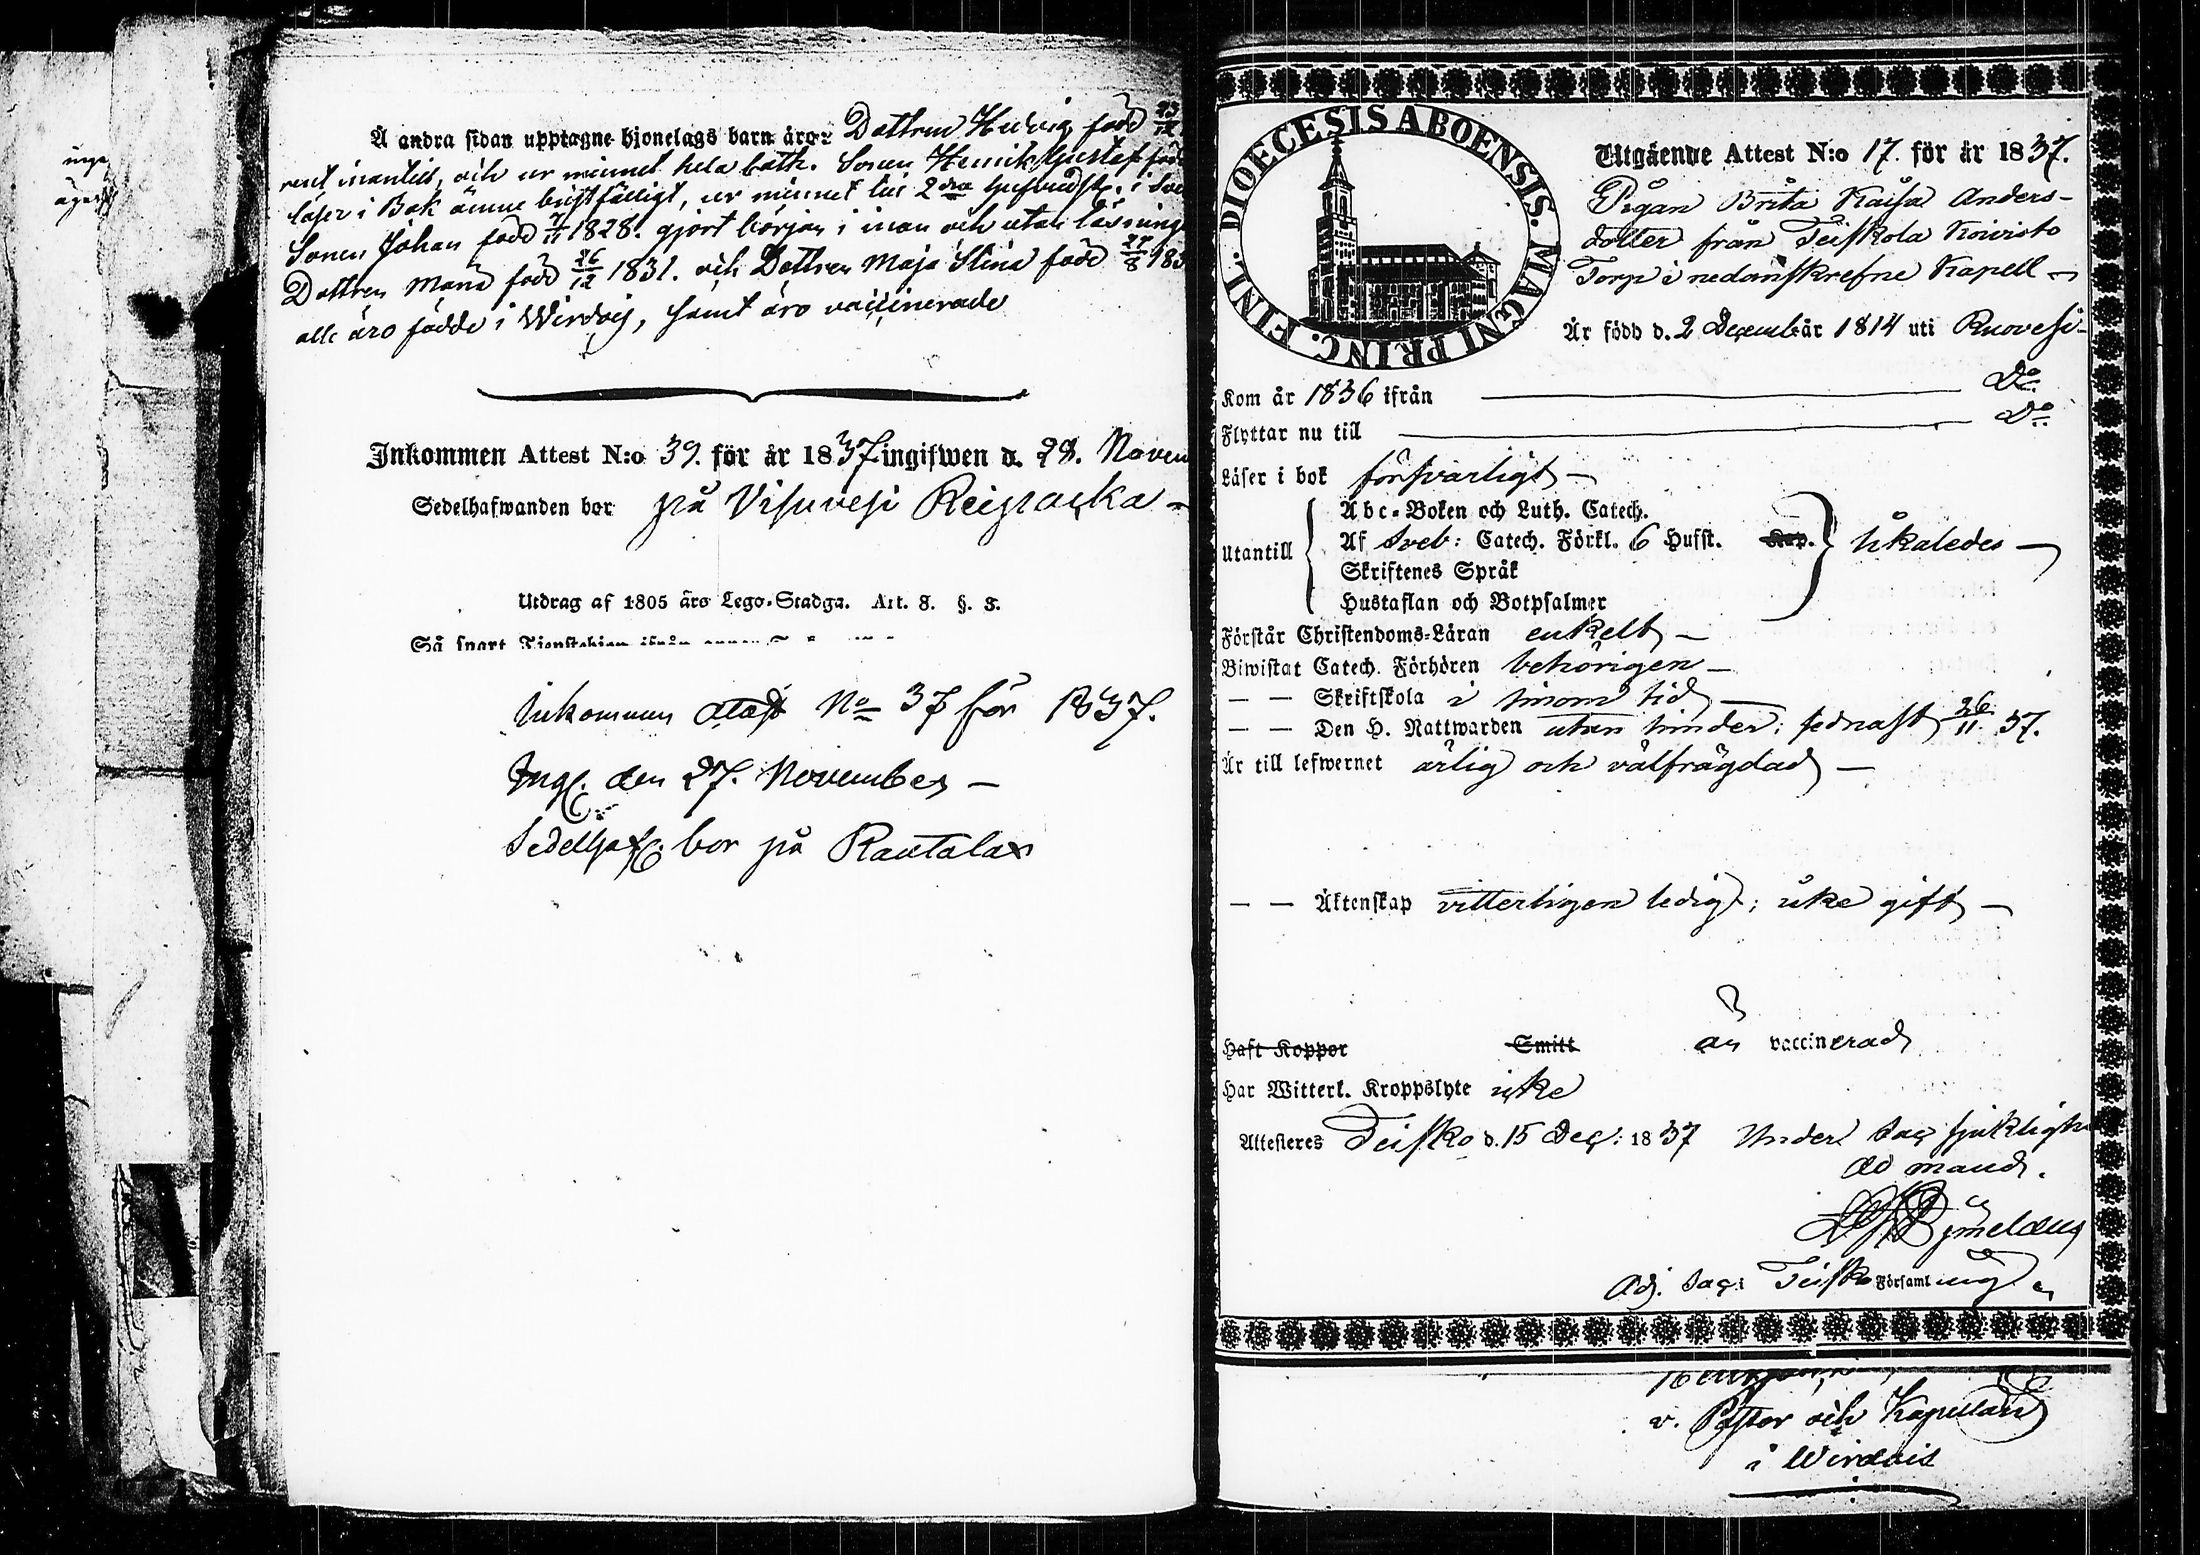 Å andra sidan upptagne hjonelags barn äro: Dottren Hedvig född 23/12
rent inantill, och ur minnet hela Cath. Sonen Henrik Gustaf föd
läser i Bok ännu bristfälligt, ur minnet till 2dra Hufvudst. i Sve
Sonen Johan född 7/11 1828. gjort början i inan och utan läsning
Dottren Maria född 26/12 1831. och Dottren Maja Stina född 24/8 183
alla äro födde i Wirdois, samt äro vaccinerade
Inkommen Attest N:o 39. för år 1837 ingifwen d. 28. Novem
Sedelhafwanden bor på Visuvesi Reipacka
Utdrag af 1805 års Lego-Stadga. Art. 8. §. 3.
Så snart
Inkommen attest No 37 för 1837.
Ingf. den 27. November
Sedelhaf. bor på Rautalax
DIOECESIS ABOENSIS. MAGNI PRINC. FINL.
Utgående Attest N:o 17. för år 1837.
Pigan Brita Kaisa Anders-
dotter från Teiskola Koivisto
Torp i nedanskrefne Kapell
Är född d. 2 December år 1814 uti Ruovesi
Kom år 1836 ifrån Do
Flyttar nu till Do
Läser i bok försvarligt
Utantill
Abc-Boken och Luth. Catech.
Af Sveb: Catech. Förkl. 6 Hufst. Kap. likaledes
Skriftenes Språk
Hustaflan och Botpsalmer
Förstår Christendoms-Läran enkelt
Biwistat Catech. Förhören behörigen
— — Skriftskola i sinom tid
— — Den H. Nattwarden utan hinder: sednast 26/11 37.
Är till lefwernet ärlig och välfrägdad
— — Äktenskap vitterligen ledig; icke gift
Haft Koppor Smitt är vaccinerad
Har Witterl. Kroppslyte icke
Attesteres Teisko d. 15 Dec: 1837 Under Sac sjuklighe
ad mand.
Adj. Sac: Teisko Församling
v. Pastor och Kapellan
i Wirdois